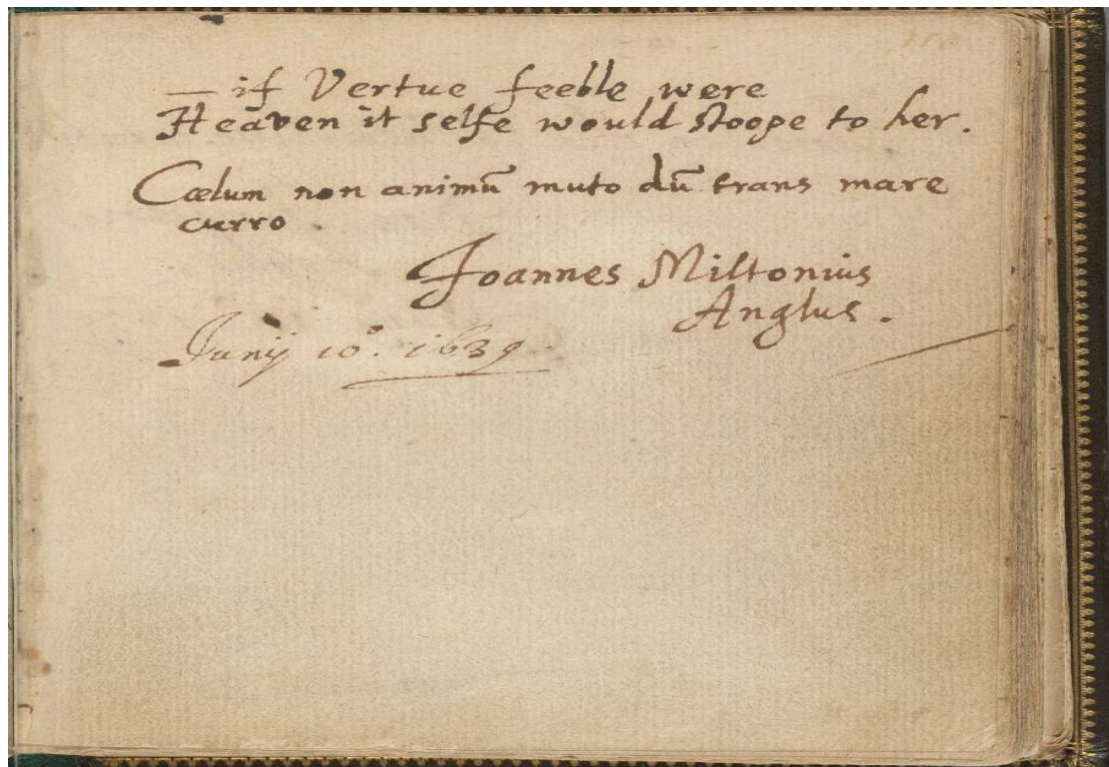 — if Vertue feeble were
Heaven it selfe would stoope to her.
Cœlum non animū muto dū trans mare
curro.
Joannes Miltonius
Anglus.
Junij 10°. 1639